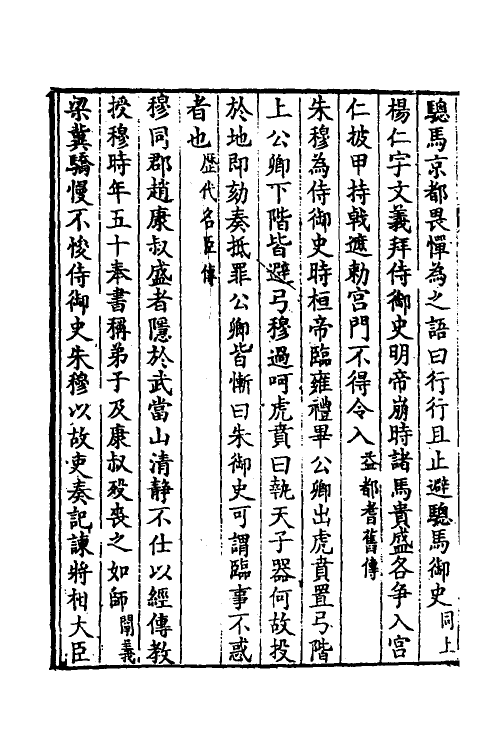 驄馬京都畏憚為之語曰行行且止避驄馬御史同上
楊仁字文義拜侍御史明帝崩時諸馬貴盛各争入宮
仁披甲持戟遮勅宮門不得令入益都耆舊傳
朱穆為侍御史時桓帝臨雍禮畢公卿出虎賁置弓階
上公卿下階皆避弓穆過呵虎賁曰執天子器何故投
於地即劾奏抵罪公卿皆慚曰朱御史可謂臨事不惑
者也歴代名臣傳
穆同郡趙康叔盛者隱於武當山清静不仕以經傳教
授穆時年五十奉書稱弟子及康叔殁喪之如師闡義
梁冀驕慢不悛侍御史朱穆以故吏奏記諫將相大臣